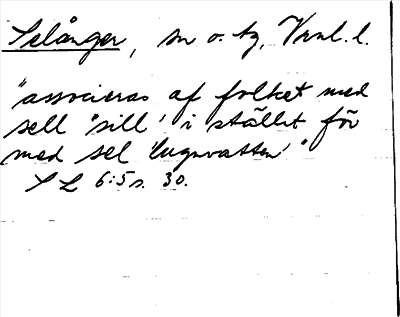 Selånger, sn o. tg, Vrnl. l.
"associeras af folket med
sell 'sill' i stället för
med sel 'lugnvatten'"
SL 6:5 s. 30.